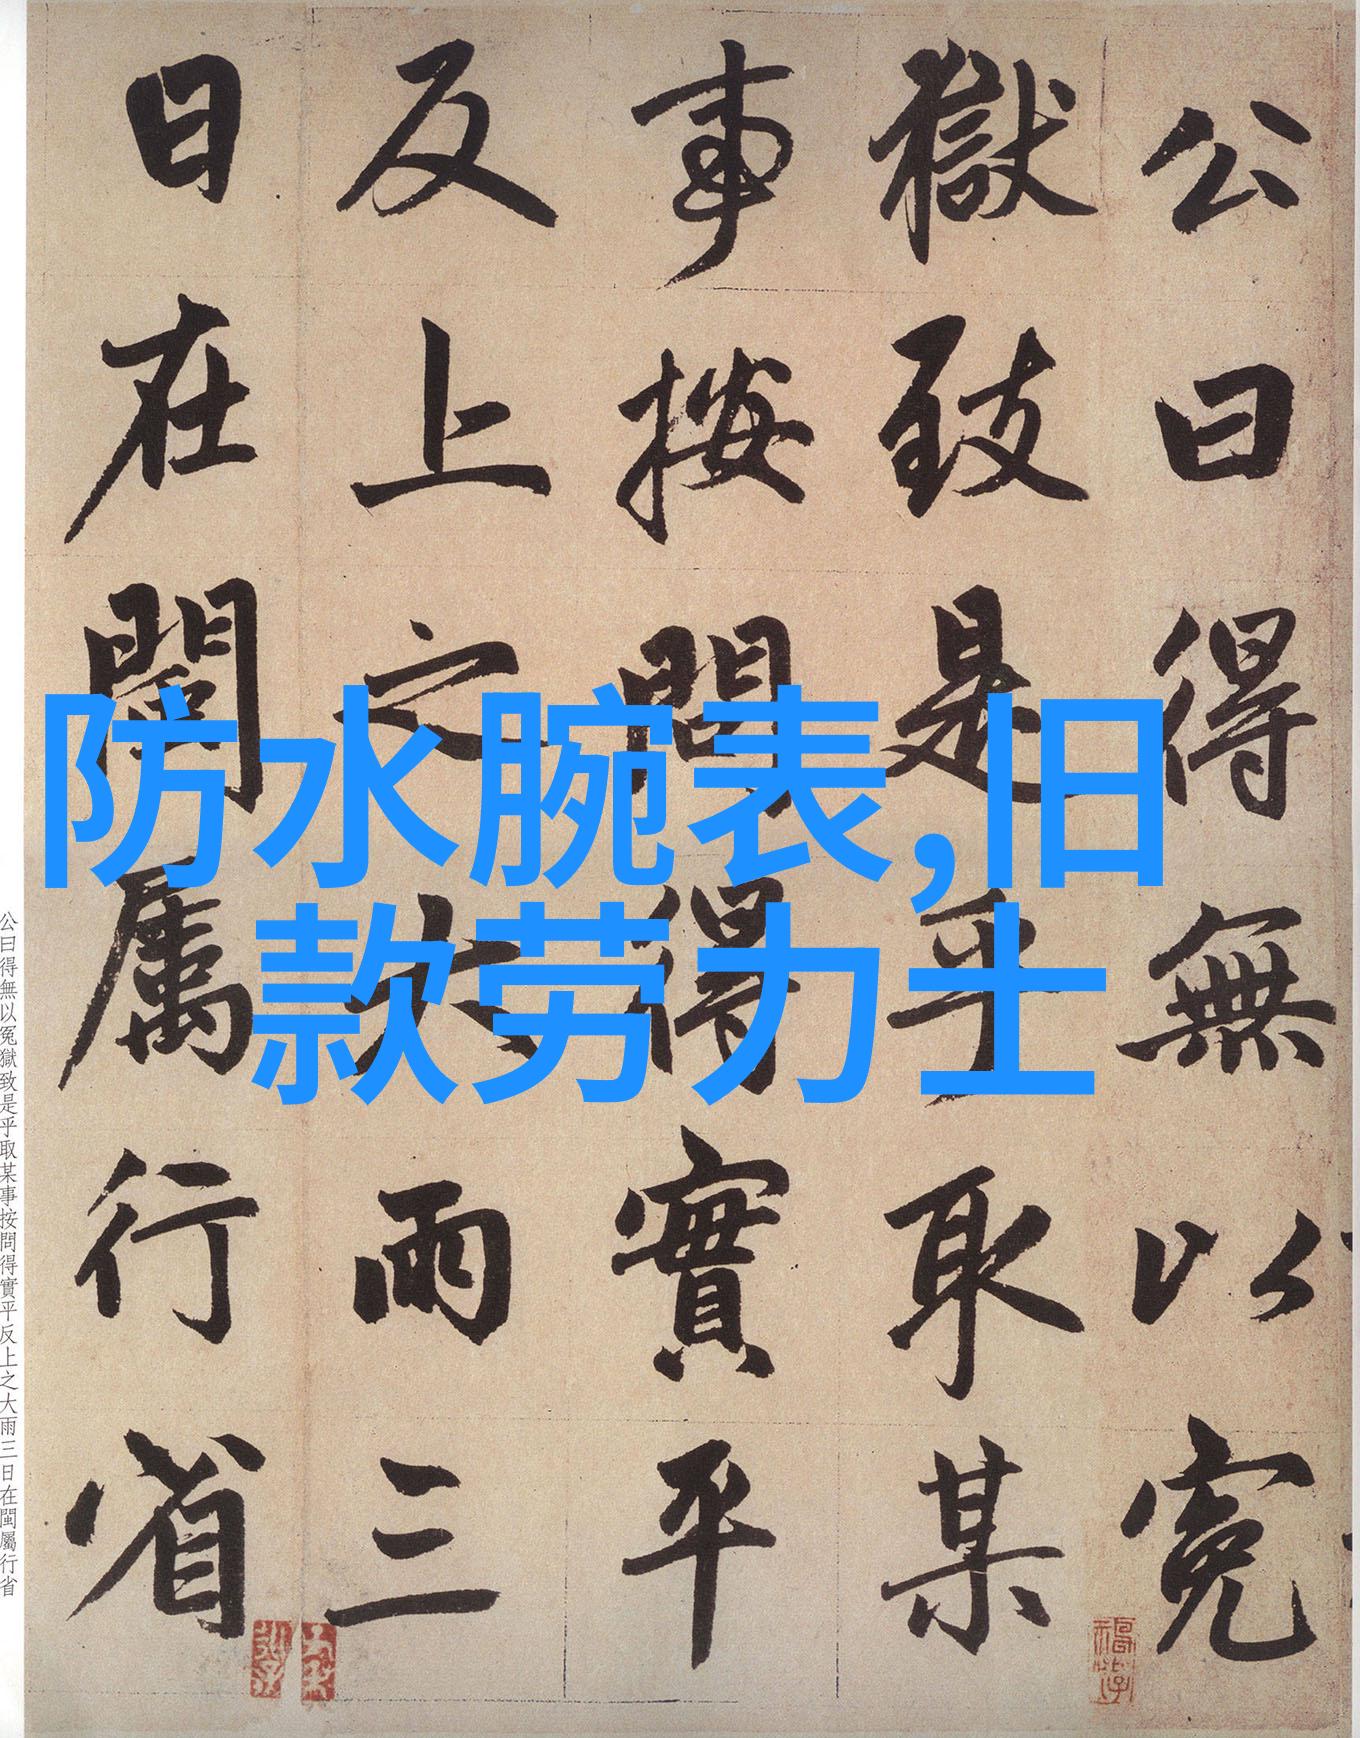 防水腕表,旧
款劳力士
公曰得無以冤
獄致是乎取某
事按問得實平
反上之大雨三
日在閩屬行省
公曰得無以冤獄致是乎取某事按問得實平反上之大雨三日在閩屬行省